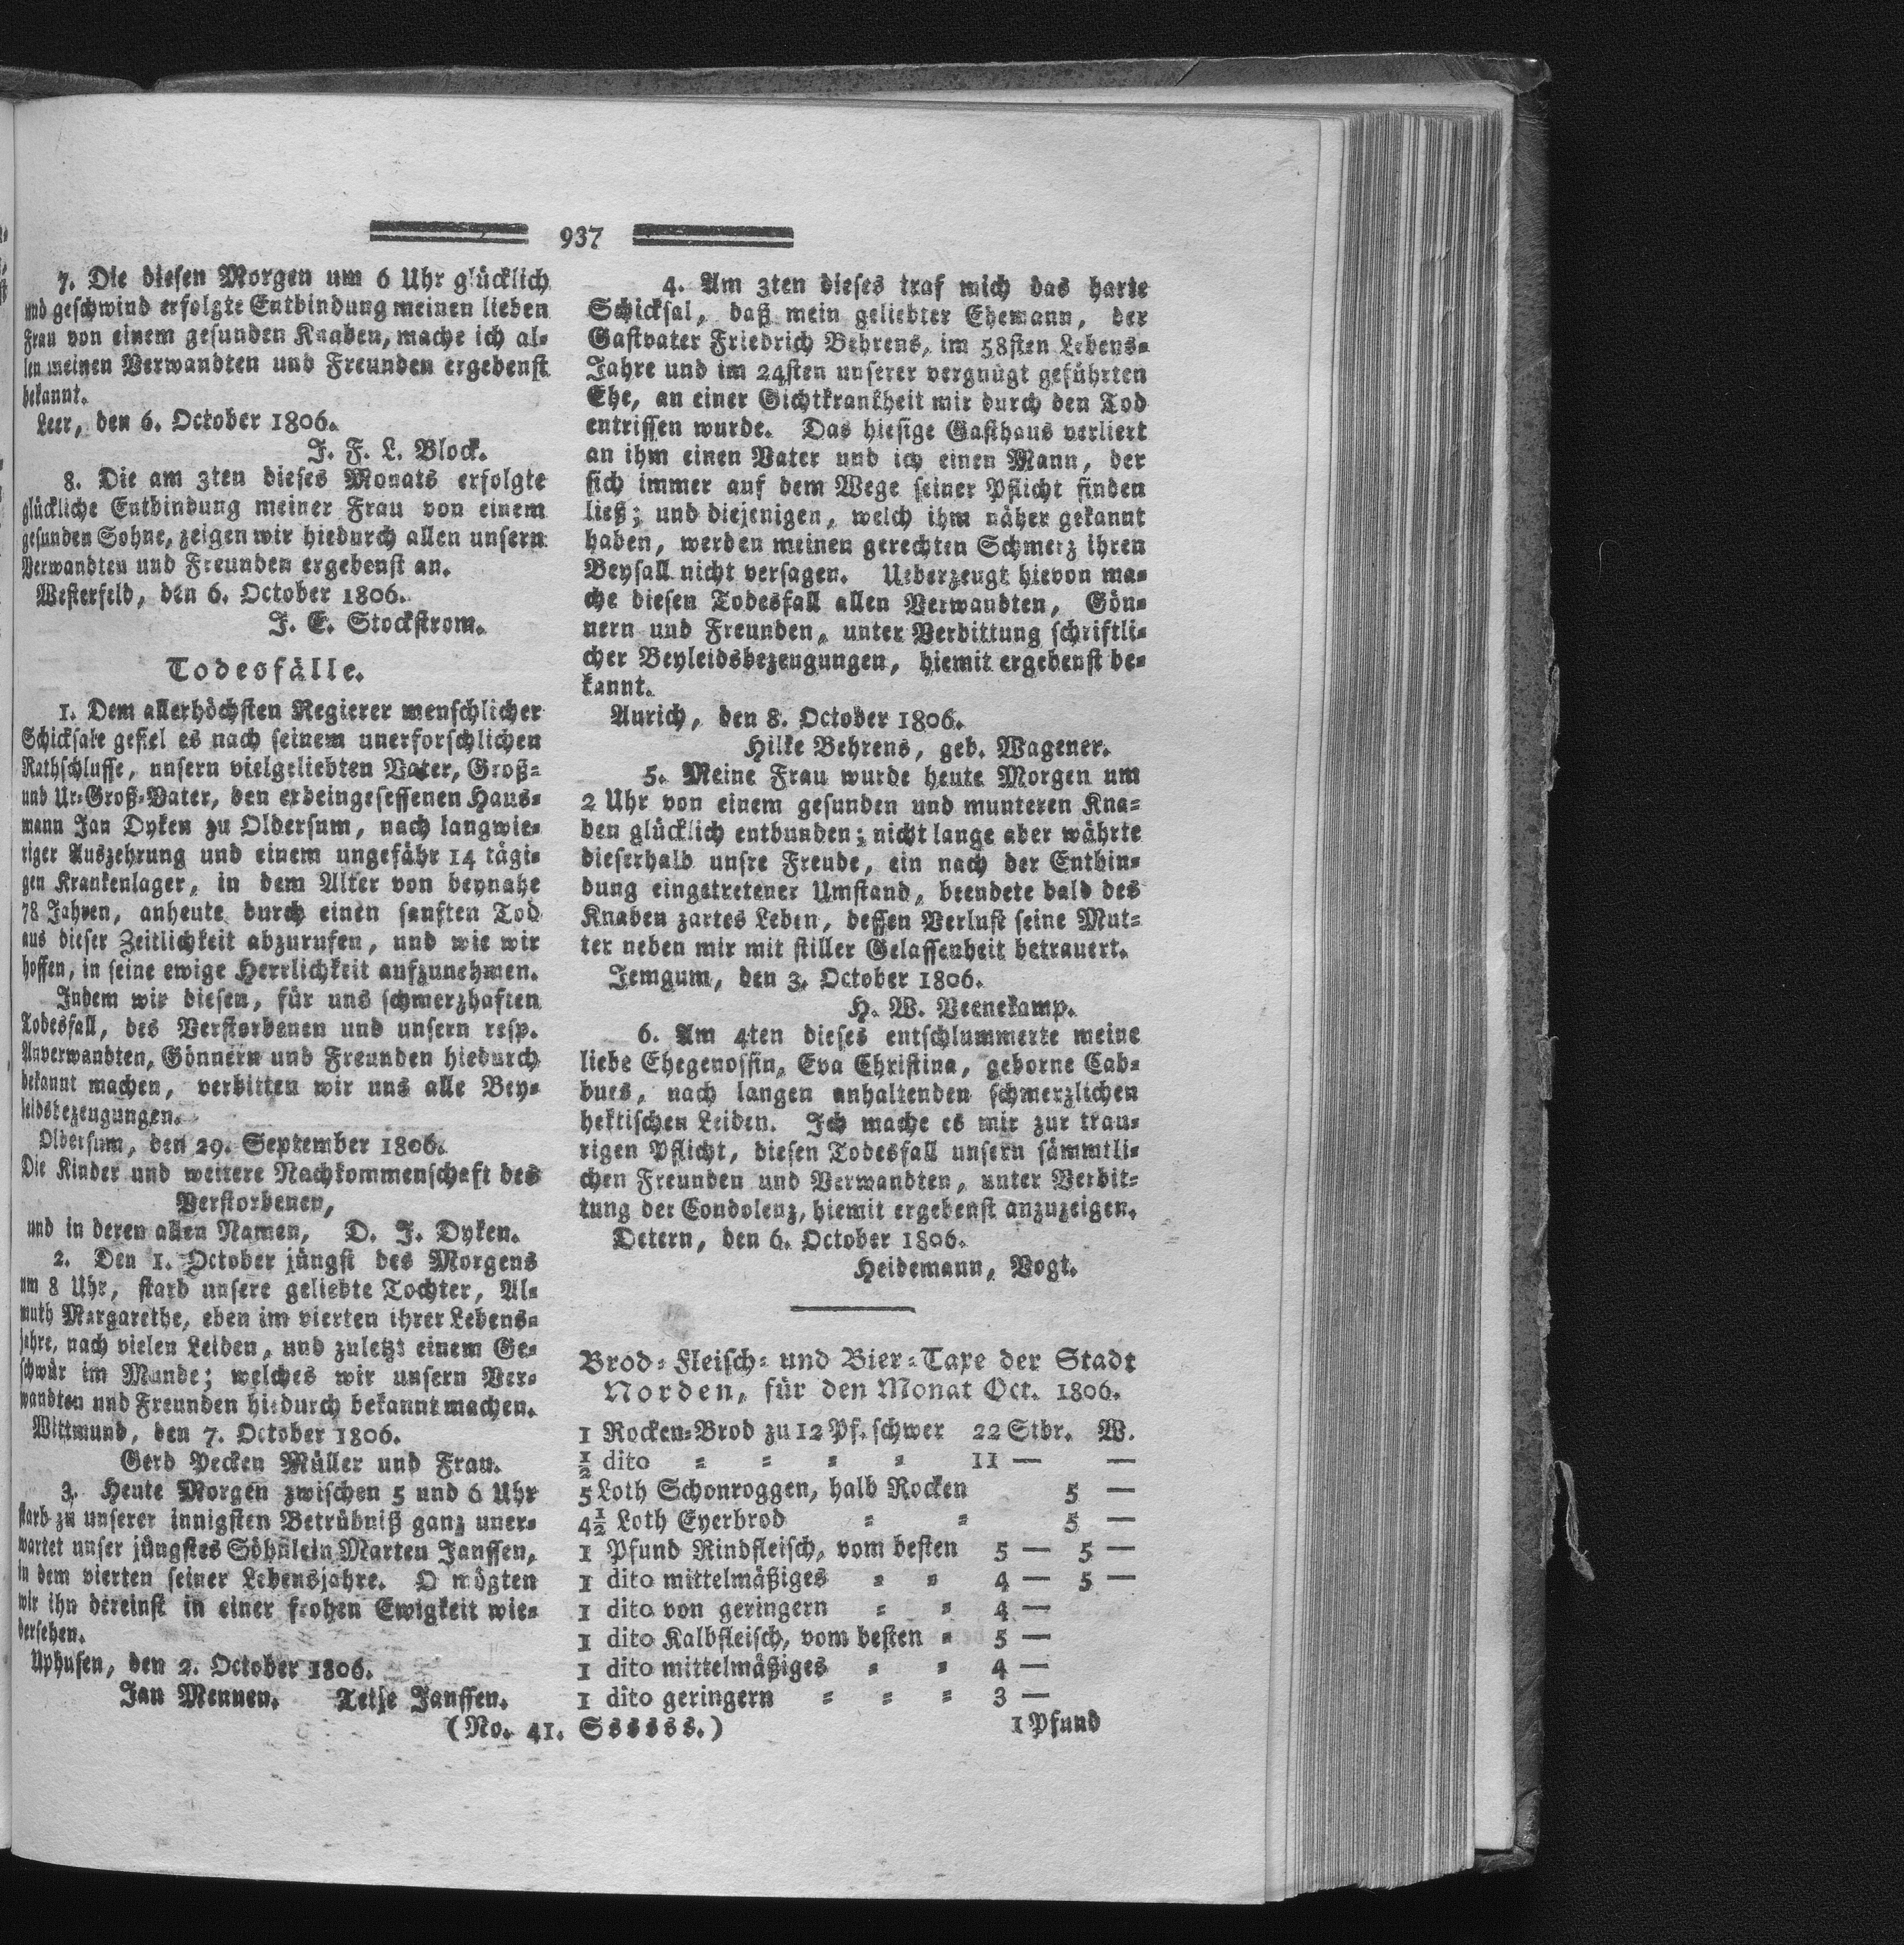 937
7. Die diesen Morgen um 6 Uhr glücklich
und geschwind erfolgte Entbindung meinen lieben
Frau von einem gesunden Knaben, mache ich al-
len meinen Verwandten und Freunden ergebenst
bekannt.
Leer, den 6. October 1806.
J. F. L. Block.
8. Die am 3ten dieses Monats erfolgte
glückliche Entbindung meiner Frau von einem
gesunden Sohne, zeigen wir hiedurch allen unsern
Verwandten und Freunden ergebenst an.
Westerfeld, den 6. October 1806.
J. E. Stockstrom.
Todesfälle.
1. Dem allerhöchsten Regierer menschlicher
Schicksale gefiel es nach seinem unerforschlichen
Rathschlusse, unsern vielgeliebten Vater, Groß-
und Ur-Groß-Vater, den erbeingesessenen Haus-
mann Jan Dyken zu Oldersum, nach langwie-
riger Auszehrung und einem ungefähr 14 tägi-
gen Krankenlager, in dem Alter von beynahe
78 Jahren, anheute durch einen sanften Tod
aus dieser Zeitlichkeit abzurufen, und wie wir
hoffen, in seine ewige Herrlichkeit aufzunehmen.
Indem wir diesen, für uns schmerzhaften
Todesfall, des Verstorbenen und unsern resp.
Anverwandten, Gönnern und Freunden hiedurch
bekannt machen, verbitten wir uns alle Bey-
leidsbezeugungen.
Oldersum, den 29. September 1806.
Die Kinder und weitere Nachkommenschaft des
Verstorbenen,
und in deren allen Namen, D. J. Dyken.
2. Den 1. October jüngst des Morgens
um 8 Uhr, starb unsere geliebte Tochter, Al-
muth Margarethe, eben im vierten ihrer Lebens-
jahre, nach vielen Leiden, und zuletzt einem Ge-
schwür im Munde; welches wir unsern Ver-
wandten und Freunden hiedurch bekannt machen.
Wittmund, den 7. October 1806.
Gerd Pecken Müller und Frau.
3. Heute Morgen zwischen 5 und 6 Uhr
starb zu unserer innigsten Betrübniß ganz uner-
wartet unser jüngstes Söhnlein Marten Janssen,
in dem vierten seiner Lebensjahre. O mögten
wir ihn dereinst in einer frohen Ewigkeit wie-
dersehen.
Uphusen, den 2. October 1806.
Jan Mennen. Tetje Janssen.
4. Am 3ten dieses traf mich das harte
Schicksal, daß mein geliebter Ehemann, der
Gastvater Friedrich Behrens, im 58sten Lebens-
Jahre und im 24sten unserer vergnügt geführten
Ehe, an einer Gichtkrankheit mir durch den Tod
entrissen wurde. Das hiesige Gasthaus verliert
an ihm einen Vater und ich einen Mann, der
sich immer auf dem Wege seiner Pflicht finden
ließ; und diejenigen, welch ihm näher gekannt
haben, werden meinen gerechten Schmerz ihren
Beyfall nicht versagen. Ueberzeugt hievon ma-
che diesen Todesfall allen Verwandten, Gön-
nern und Freunden, unter Verbittung schriftli-
cher Beyleidsbezeugungen, hiemit ergebenst be-
kannt.
Aurich, den 8. October 1806.
Hilke Behrens, geb. Wagener.
5. Meine Frau wurde heute Morgen um
2 Uhr von einem gesunden und munteren Kna-
ben glücklich entbunden; nicht lange aber währte
dieserhalb unsre Freude, ein nach der Entbin-
dung eingetretener Umstand, beendete bald des
Knaben zartes Leben, dessen Verlust seine Mut-
ter neben mir mit stiller Gelassenheit betrauert.
Jemgum, den 3. October 1806.
H. W. Veenekamp.
6. Am 4ten dieses entschlummerte meine
liebe Ehegenossin, Eva Christina, geborne Cad-
dues, nach langen anhaltenden schmerzlichen
hektischen Leiden. Ich mache es mir zur trau-
rigen Pflicht, diesen Todesfall unsern sämmtli-
chen Freunden und Verwandten, unter Verbit-
tung der Condolenz, hiemit ergebenst anzuzeigen.
Detern, den 6. October 1806.
Heidemann, Vogt.
Brod- Fleisch- und Bier-Taxe der Stadt
Norden, für den Monat Oct. 1806.
1 Rocken-Brod zu 12 Pf. schwer 22 Stbr. W.
½ dito = = = = 11 — —
5 Loth Schonroggen, halb Rocken 5 —
4½ Loth Eyerbrod = = 5 —
1 Pfund Rindfleisch, vom besten 5 — 5 —
1 dito mittelmäßiges = = 4 — 5 —
1 dito von geringern = = 4 —
1 dito Kalbfleisch, vom besten = 5 —
1 dito mittelmäßiges = = 4 —
1 dito geringern = = = 3 —
(No. 41. Ssssss.) 1 Pfund